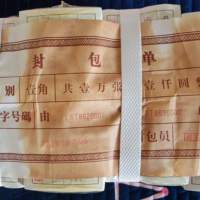 封包单
别 壹角 共壹万张 壹仟圆整
字号码由
封包员